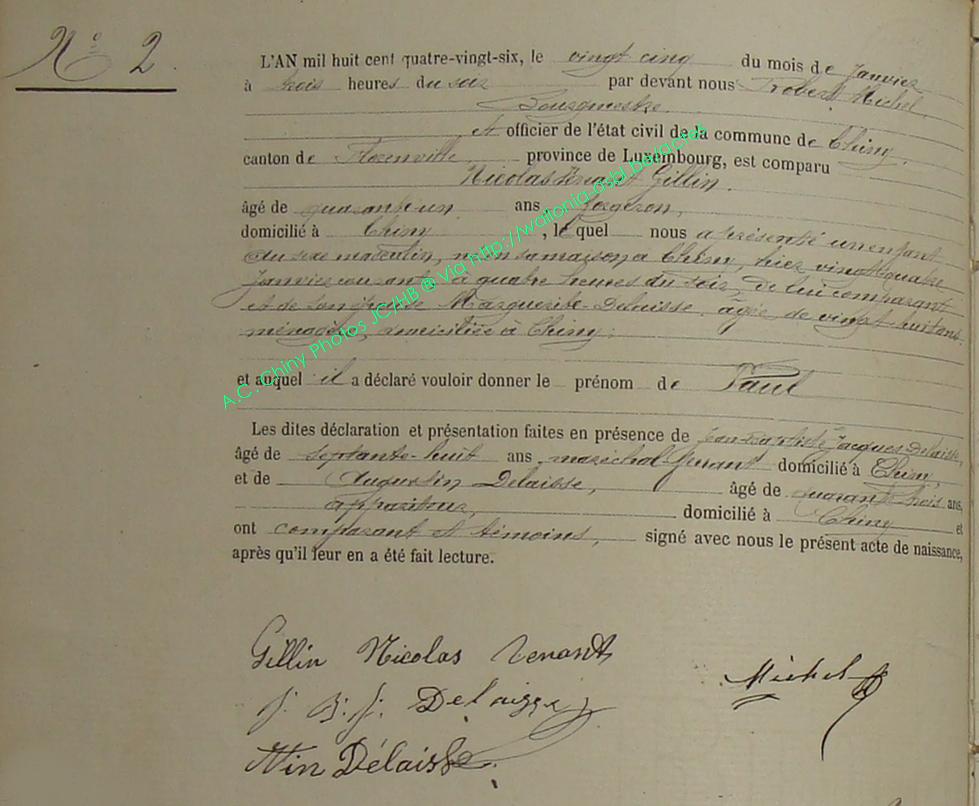 N° 2.
L'AN mil huit cent quatre-vingt-six, le vingt cinq du mois de Janvier
à trois heures du soir par devant nous Probert Michel,
Bourgmestre
et officier de l'état civil de la commune de Chiny,
canton de Florenville province de Luxembourg, est comparu
Nicolas Venant Gillin.
âgé de quarante-un ans, forgeron,
domicilié à Chiny, le quel nous a présenté un enfant
du sexe masculin, né en sa maison à Chiny, hier vingt quatre
Janvier courant à quatre heures du soir, de lui comparant
et de son épouse Marguerite Delaisse, âgée de vingt-huit ans
ménagère, domiciliée à Chiny;
et auquel il a déclaré vouloir donner le prénom de Paul
Les dites déclaration et présentation faites en présence de Jean Baptiste Jacques Delaisse,
âgé de septante-huit ans, maréchal ferrant domicilié à Chiny,
et de Augustin Delaisse, âgé de quarante trois ans,
appariteur, domicilié à Chiny et
ont comparant et témoins, signé avec nous le présent acte de naissance,
après qu'il leur en a été fait lecture.
Gillin Nicolas Venant
Michel
J. B. J. Delaisse
Ntin Délaisse.
A.C. Chiny Photos JC/HB ® Via http://wallonia-asbl.be/actes